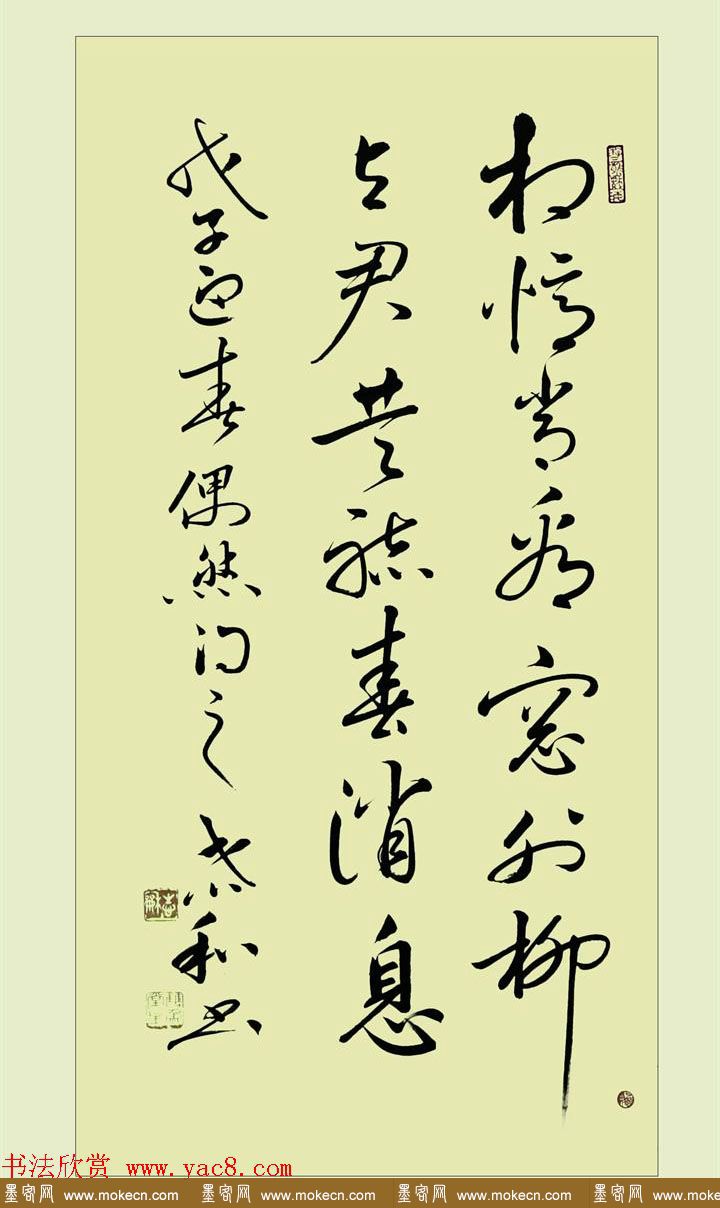 相憶常看窗外柳
与君共聽春消息
戊子迎春偶然得之 和书
书法欣赏 www.yac8.com
墨客网 www.mokecn.com 墨客网 www.mokecn.com 墨客网 www.mokecn.com 墨客网 www.mokecn.com